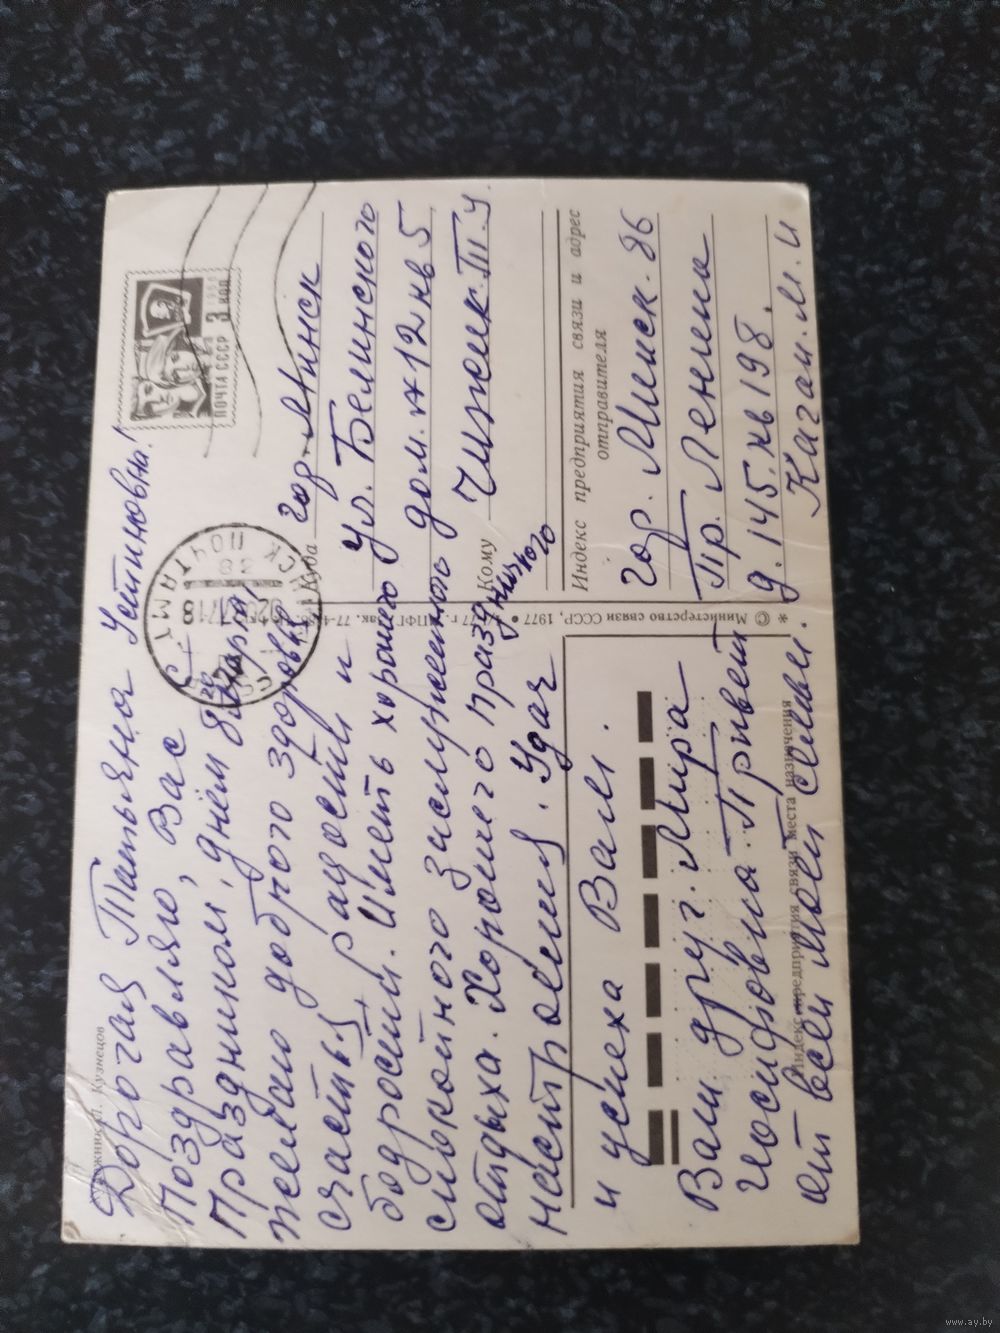 Художник П. Кузнецов
Дорогая Татьяна Устиновна!
Поздравляю, Вас с
Праздником, днём 8 марта,
желаю доброго здоровья
счастья радости и
бодрости. Иметь хорошего
спокойного заслуженного
отдыха. Хорошего праздничного
настроения. Удач
и успеха Вам.
Ваш друг. Мира
Иосифовна. Привет
от всей моей семьи.
ПОЧТА СССР 3 коп
1966
ПОЧТАМТ
Куда гор. Минск
ул. Белинского
дом. № 12 кв 5
Кому Чижик. Т. У.
Индекс предприятия связи и адрес
отправителя
гор. Минск. 86
Пр. Ленина
д. 145. кв 198.
Каган. М. И
© Министерство связи СССР, 1977
Индекс предприятия связи места назначения
www.ay.by